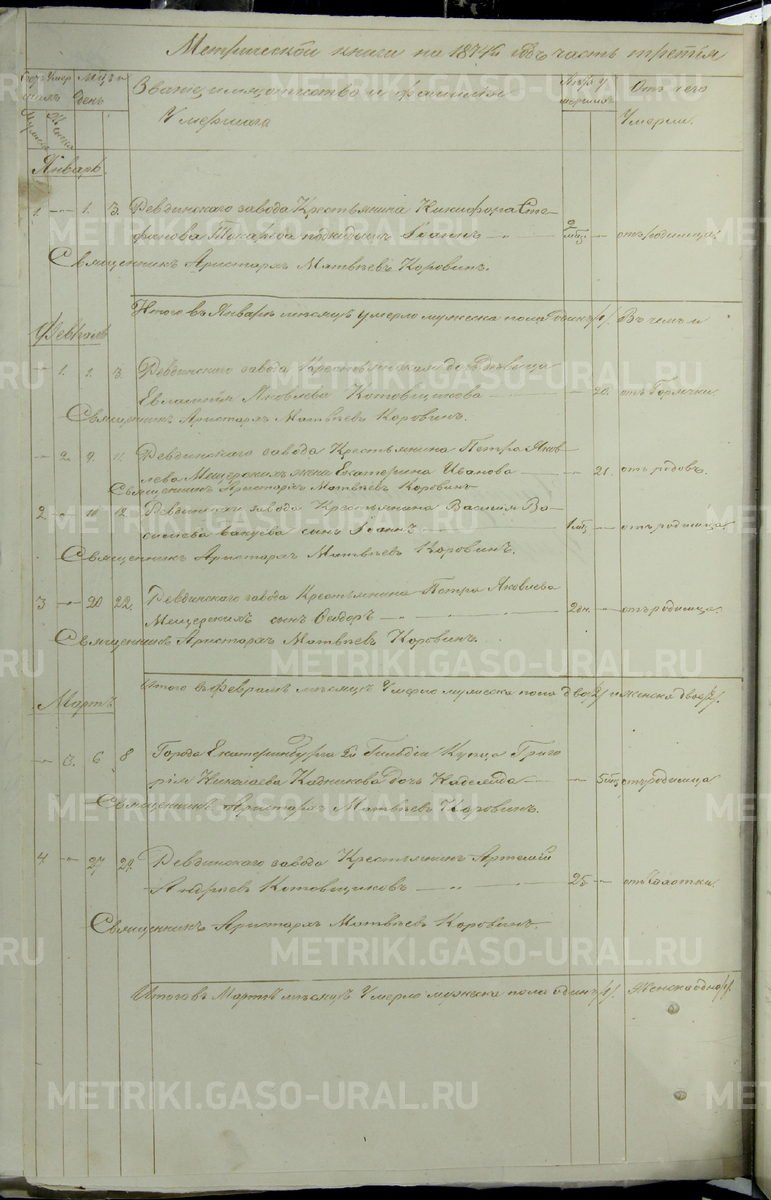 Метрической книги на 1874й годъ часть третія
Счетъ умер
шихъ
Мужеска
Женска
Мѣсяцъ и
день
Званіе имя отчество и фамилія
Умершаго
Лѣта у
мершихъ
Отъ чего
Умерли.
Январь
1 — 1. 3. Ревдинскаго завода Крестьянина Никифора Сте
фанова Токарева подкидышъ Іоаннъ — мѣс — отъ родимца.
Священникъ Аристархъ Матвѣевъ Коровинъ.
Итого въ Январѣ мѣсяцѣ умерло мужеска пола Одинъ /1/. В
Февраль
— 1. 1. 3. Ревдинскаго завода Крестьянская дочь дѣвица
Евлампія Яковлева Котовщикова — 20. отъ Горячки
Священникъ Аристархъ Матвѣевъ Коровинъ.
— 2. 9. 11. Ревдинскаго завода Крестьянина Петра Яков
лева Мещерскихъ жена Екатерина Иванова — 21. отъ родовъ.
Священникъ Аристархъ Матвѣевъ Коровинъ
2 — 10 12. Ревдинскаго завода Крестьянина Василія Ва
сильева сынъ Іоаннъ — 1 мѣс — отъ родимца.
Священникъ Аристархъ Матвѣевъ Коровинъ.
3 — 20 22. Ревдинскаго завода Крестьянина Петра Яковлева
Мещерскихъ сынъ Ѳедоръ — 2 дн. — отъ родимца.
Священникъ Аристархъ Матвѣевъ Коровинъ.
Итого въ Февралѣ мѣсяцѣ Умерло мужеска пола два /2/ и женска двое /2/.
Мартъ
— 3. 6 8 Города Екатеринбурга 2й Гильдіи Купца Григо
рія Николаева Кадникова Дочь Надежда — 5 мѣс отъ родимца
Священникъ Аристархъ Матвѣевъ Коровинъ.
4 — 27 29. Ревдинскаго завода Крестьянинъ Артемій
Андреевъ Котовщиковъ — 25 — отъ Чахотки.
Священникъ Аристархъ Матвѣевъ Коровинъ.
Итого въ Мартѣ мѣсяцѣ Умерло мужеска пола одинъ /1/. Женска одна /1/.
METRIKI.GASO-URAL.RU